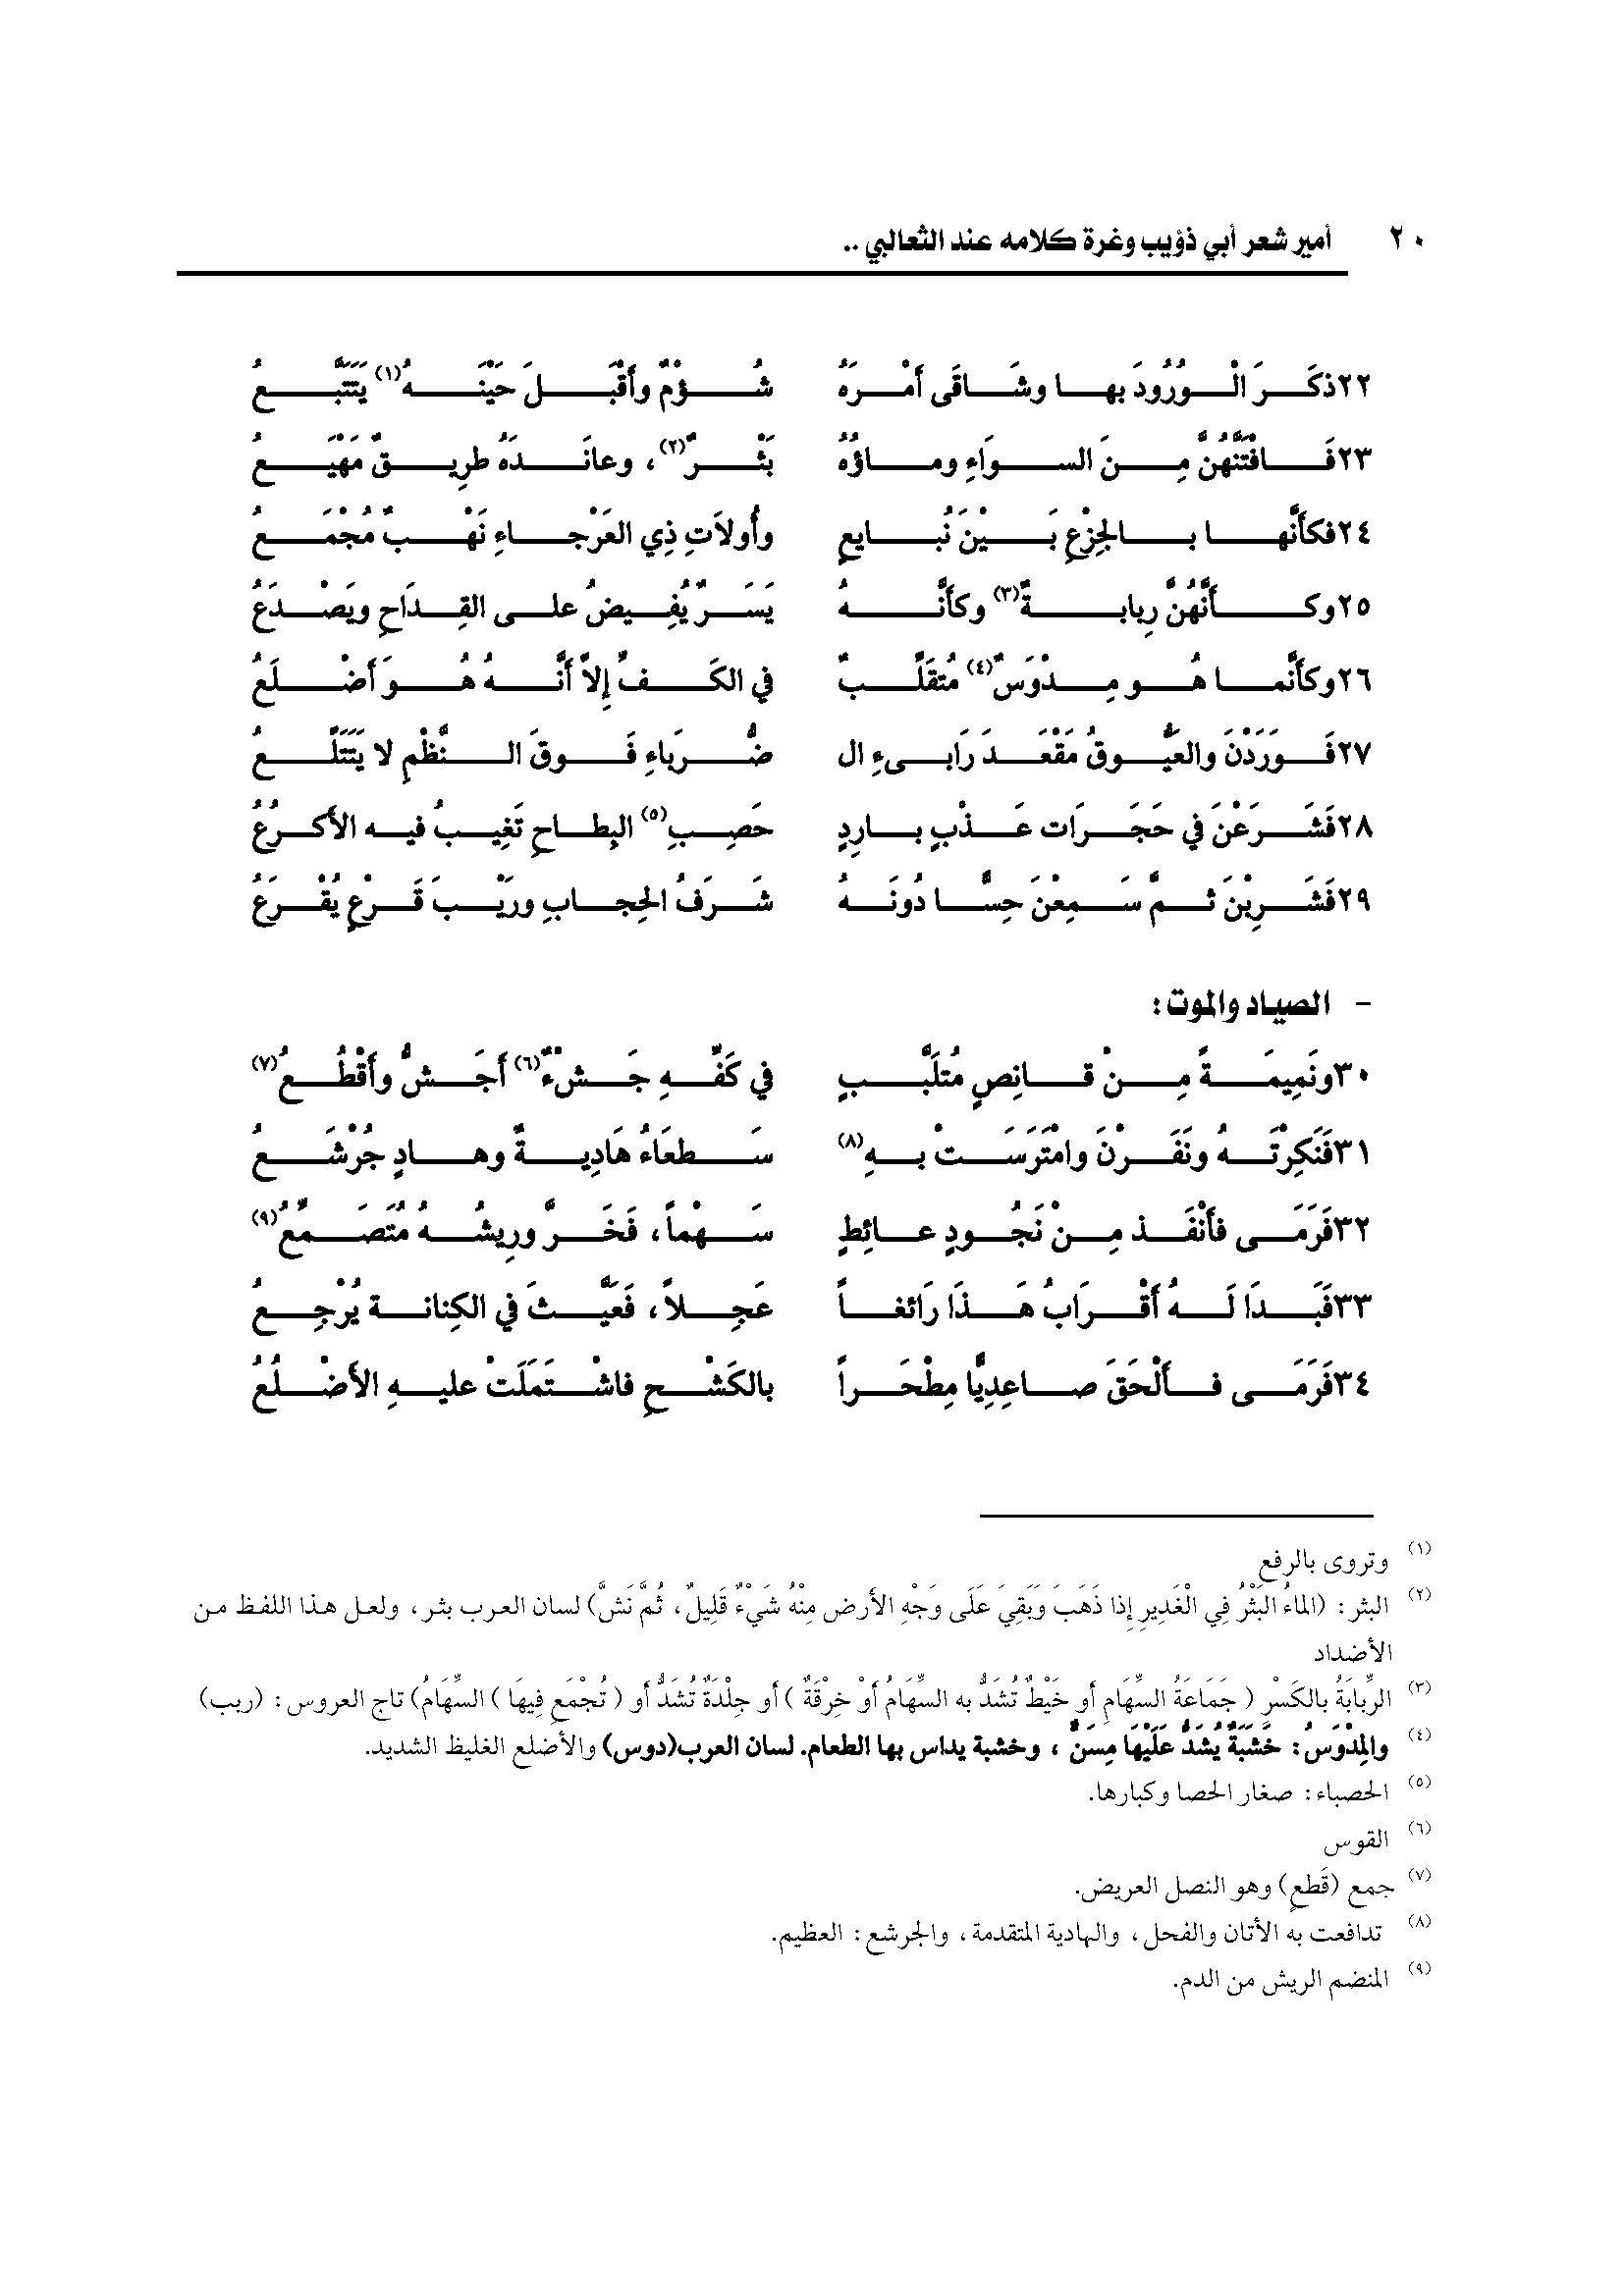 ٢٠ أمير شعر أبي ذؤيب وغرة كلامه عند الثعالبي ..
٢٢ذكَرَ الْوُرُودَ بها وشَاقَى أَمْرَهُ شُؤْمٌ وأَقْبَلَ حَيْنَهُ(١) يَتَتَبَّعُ
٢٣فَافْتَنَّهُنَّ مِنَ السوَاءِ وماؤُه بَثْرٌ(٢)، وعانَدَهُ طرِيقٌ مَهْيَعُ
٢٤فكأَنَّها بالجِزْعِ بَيْنَ نُبايعٍ وأُولاَتِ ذِي العَرْجاءِ نَهْبٌ مُجْمَعُ
٢٥وكأَنَّهُنَّ رِبابةٌ(٣) وكأَنَّهُ يَسَرٌ يُفِيضُ على القِدَاحِ ويَصْدَعُ
٢٦وكأَنَّما هُو مِدْوَسٌ(٤) مُتقَلَّبٌ في الكَفٌ إلاَّ أَنَّهُ هُوَ أَضْلَعُ
٢٧فَوَرَدْنَ والعَيُّوقُ مَقْعَدَ رَابىءِ ال ضُّرَباءِ فَوقَ النَّظْمِ لا يَتَتَلَّعُ
٢٨فَشَرَعْنَ في حَجَرَات عَذْبٍ بارِدٍ حَصِبِ(٥) البِطاحِ تَغِيبُ فيه الأكرُعُ
٢٩فَشَرِبْنَ ثمَّ سَمِعْنَ حِسًّا دُونَهُ شَرَفُ الحِجابِ ورَيْبَ قَرْعٍ يُقْرَعُ
– الصياد والموت:
٣٠ونَمِيمَةً مِنْ قانِصٍ مُتلَبَّبٍ في كَفّهِ جَشْءٌ(٦) أَجَشُّ وأَقْطُعُ(٧)
٣١فَنَكِرْتَهُ ونَفَرْنَ وامْتَرَسَتْ بهِ(٨) سَطعَاءُ هَادِيةٌ وهادٍ جُرْشَعُ
٣٢فَرَمَى فأَنْفَذ مِنْ نَجُودٍ عائطٍ سَهْماً، فَخَرَّ ورِيشُهُ مُتَصَمِّعُ(٩)
٣٣فَبَدَا لَهُ أَقْرَابُ هَذَا رَائغاً عَجِلاً، فَعَيَّثَ في الكِنانة يُرْجِعُ
٣٤فَرَمَى فأَلْحَقَ صاعِدِيًّا مِطْحَراً بالكَشْحِ فاشْتَمَلَتْ عليهِ الأَضْلُعُ
(١) وتروى بالرفع
(٢) البثر: (الماءُ البَثْرُ فِي الْغَدِيرِ إِذا ذَهَبَ وَبَقِيَ عَلَى وَجْهِ الأَرض مِنْهُ شَيْءٌ قَلِيلٌ، ثُمَّ نَشَّ) لسان العرب بثر، ولعل هذا اللفظ من
الأضداد
(٣) الرِّبابَةُ بالكَسْرِ ( جَمَاعَةُ السِّهَامِ أو خَيْطٌ تُشَدُّ به السِّهَامُ أوْ خِرْقَةٌ ) أو جِلْدَةٌ تُشَدُّ أو ( تُجْمَع فِيهَا ) السِّهَامُ) تاج العروس: (ربب)
(٤) والمِدْوَسُ: خَشَبَةٌ يُشَدُّ عَلَيْهَا مِسَنٌّ ، وخشبة يداس بها الطعام. لسان العرب(دوس) والأضلع الغليظ الشديد.
(٥) الحصباء: صغار الحصا وكبارها.
(٦) القوس
(٧) جمع (قَطعٍ) وهو النصل العريض.
(٨) تدافعت به الأتان والفحل، والهادية المتقدمة، والجرشع: العظيم.
(٩) المنضم الريش من الدم.